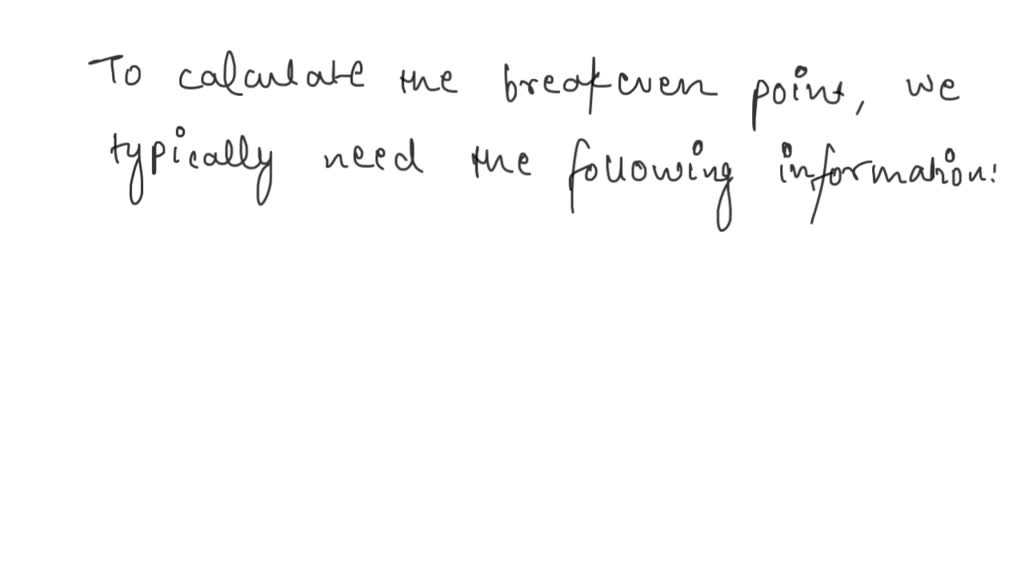 To calculate the breakeven point, we
typically need the following information: